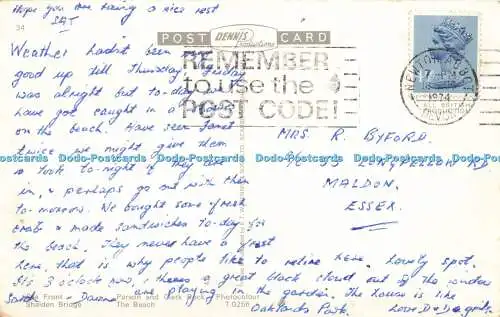 Hope you are having a nice rest
SAT
34
POST DENNIS Productions CARD
REMEMBER
to use the
POST CODE!
NEWTON ABBOT
1974
DEVON
Weather hadn't been
good up till Thursday. Friday
was alright but to-day
have got caught in a
on the beach. Have seen Janet
twice we might give them
a look to-night if they are
in, & perhaps go out with them
to-morrow. We bought some fresh
crab & made sandwiches to-day for
the beach. They never have a frost
here, that is why people like to retire here. Lovely spot.
It's 3 o'clock now, & theres a great black cloud out of the window
are playing in the garden. The house is like
Oaklands Park. Love D & D
MRS R. BYFORD.
LONGFELLOW RD
MALDON.
ESSEX.
Dodo-Postcards Dodo-Postcards Dodo-Postcards Dodo-Postcards Dodo-Postcards Dodo-Postcards
Front
Shaldon Bridge
Parson and Clerk Rock
The Beach
Photocolour
T 0256